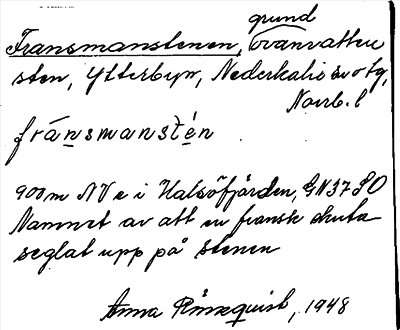 grund
Fransmanstenen, Ovanvatten
sten, Ytterbyn, Nederkalix sn o tg,
Norrb. l
fránsmanstén
900 m NV e i Halsöfjärden, GN 37 SO
Namnet av att en fransk skuta
seglat upp på stenen
Anna Rönnquist, 1948